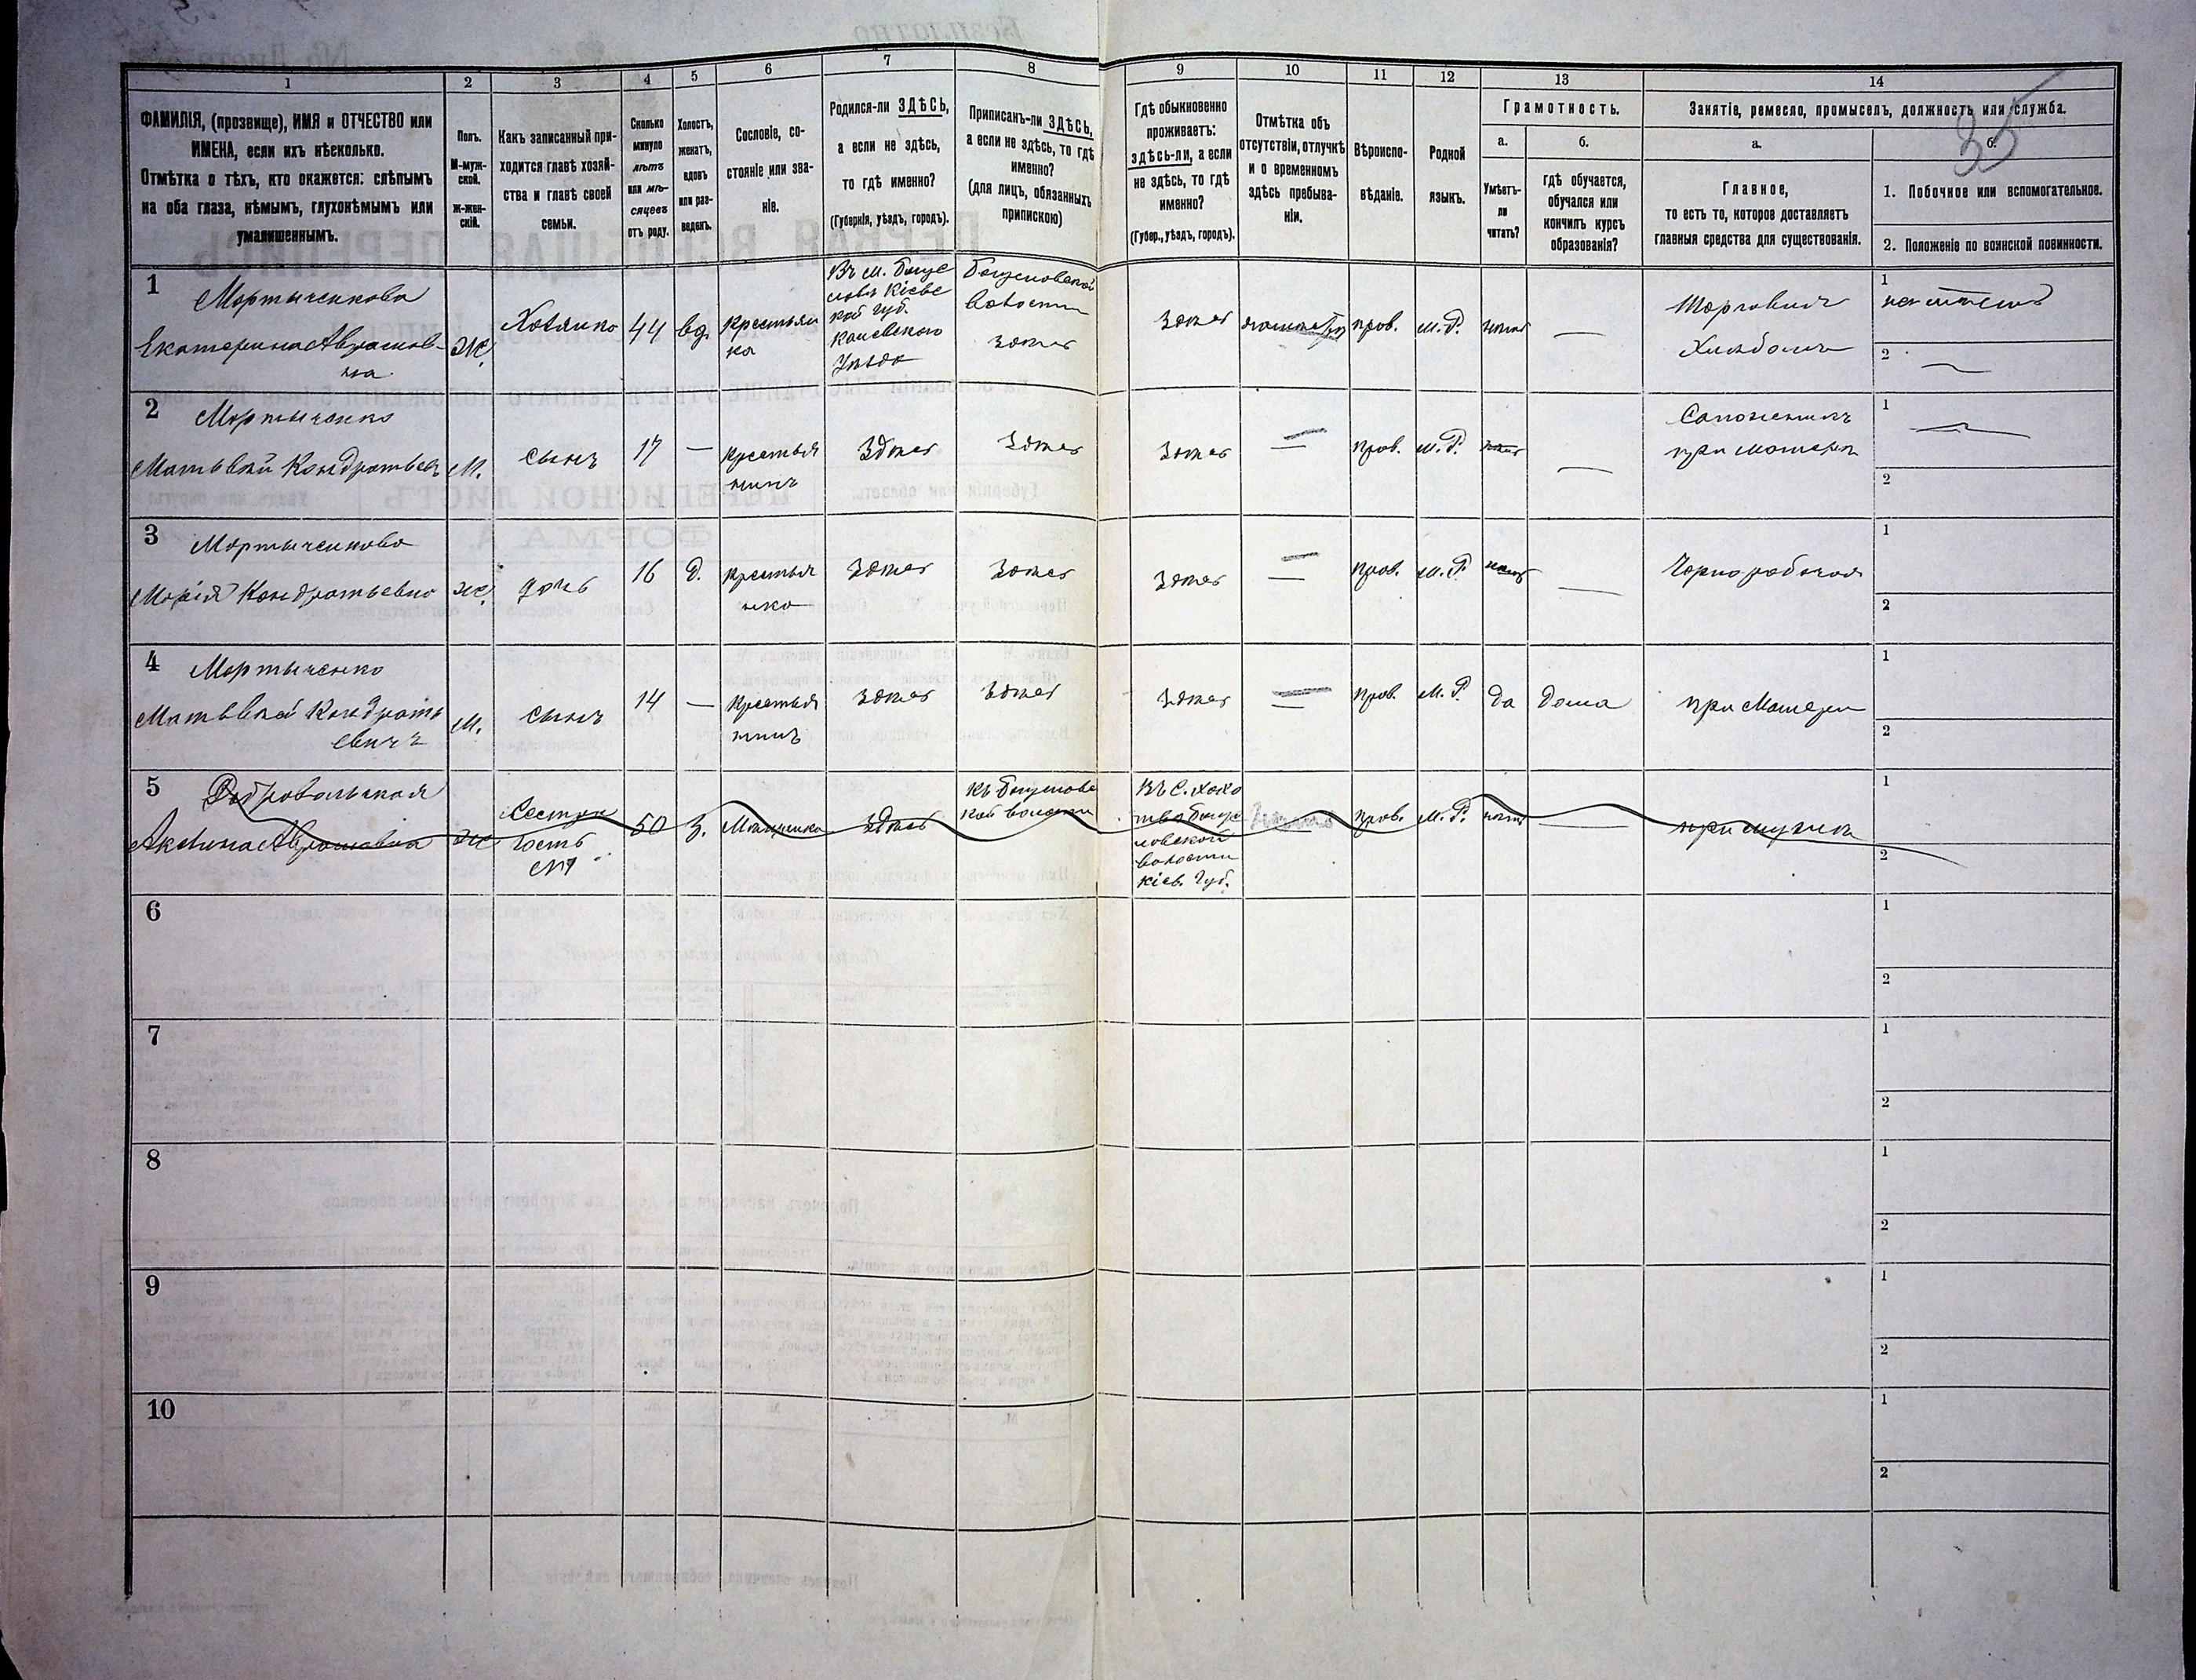 1 2 3 4 5 6 7 8 9 10 11 12 13 14
ФАМИЛІЯ, (прозвище), ИМЯ и ОТЧЕСТВО или
ИМЕНА, если ихъ нѣсколько.
Отмѣтка о тѣхъ, кто окажется: слѣпымъ
на оба глаза, нѣмымъ, глухонѣмымъ или
умалишеннымъ.
Полъ.
М-муж-
ской.
Ж-жен-
скій.
Какъ записанный при-
ходится главѣ хозяй-
ства и главѣ своей
семьи.
Сколько
минуло
лѣтъ
или мѣ-
сяцевъ
отъ роду.
Холостъ,
женатъ,
вдовъ
или раз-
веденъ.
Сословіе, со-
стояніе или зва-
ніе.
Родился-ли ЗДѢСЬ,
а если не здѣсь,
то гдѣ именно?
(Губернія, уѣздъ, городъ).
Приписанъ-ли ЗДѢСЬ,
а если не здѣсь, то гдѣ
именно?
(для лицъ, обязанныхъ
припискою)
Гдѣ обыкновенно
проживаетъ:
здѣсь-ли, а если
не здѣсь, то гдѣ
именно?
(Губер., уѣздъ, городъ).
Отмѣтка объ
отсутствіи, отлучкѣ
и о временномъ
здѣсь пребыва-
ніи.
Вѣроиспо-
вѣданіе.
Родной
языкъ.
Грамотность.
а.
Умѣетъ-
ли
читать?
б.
гдѣ обучается,
обучался или
кончилъ курсъ
образованія?
Занятіе, ремесло, промыселъ, должность или служба.
а.
Главное,
то есть то, которое доставляетъ
главныя средства для существованія.
б.
35
1. Побочное или вспомогательное.
2. Положеніе по воинской повинности.
1
Мартыченкова
Екатерина Абрамов-
на
Ж.
Хозяйка
44
вд.
Крестьян
ка
Въ м. Богус
лавъ Кіевс
кой губ.
Каневского
Уѣзда
Богуславской
волости
здѣсь
Здѣсь
прав.
м. Р.
нѣтъ
—
Торговля
Хлѣбомъ
1
2 —
2
Мартыченко
Матьвѣй Кондратьевъ
М.
сынъ
17
—
крестья
нинъ
Здѣсь
Здѣсь
Здѣсь
—
прав.
м. Р.
нѣтъ
—
Сапожникъ
при матери
1 —
2
3
Мартыченкова
Марія Кондратьевна
Ж.
дочь
16
д.
крестья
нка
Здѣсь
Здѣсь
Здѣсь
—
прав.
м. Р.
нѣтъ
—
Чорнорабочая
1
2
4
Мартыченко
Матьвѣй Кондрать
евичъ
М.
сынъ
14
—
крестья
нинъ
Здѣсь
Здѣсь
Здѣсь
—
прав.
М. Р.
да
дома
при Матери
1
2
5
Добровольская
Аксинья Абрамовна
Ж
Сестра
гость
№1
50
З.
Мѣщанка
Здѣсь
Къ Богуславс
кой волости
Въ С.
Богус
лавской
волости
Кіев. Губ.
—
прав.
М. Р.
нѣтъ
—
при мужѣ
1
2
6
1
2
7
1
2
8
1
2
9
1
2
10
1
2